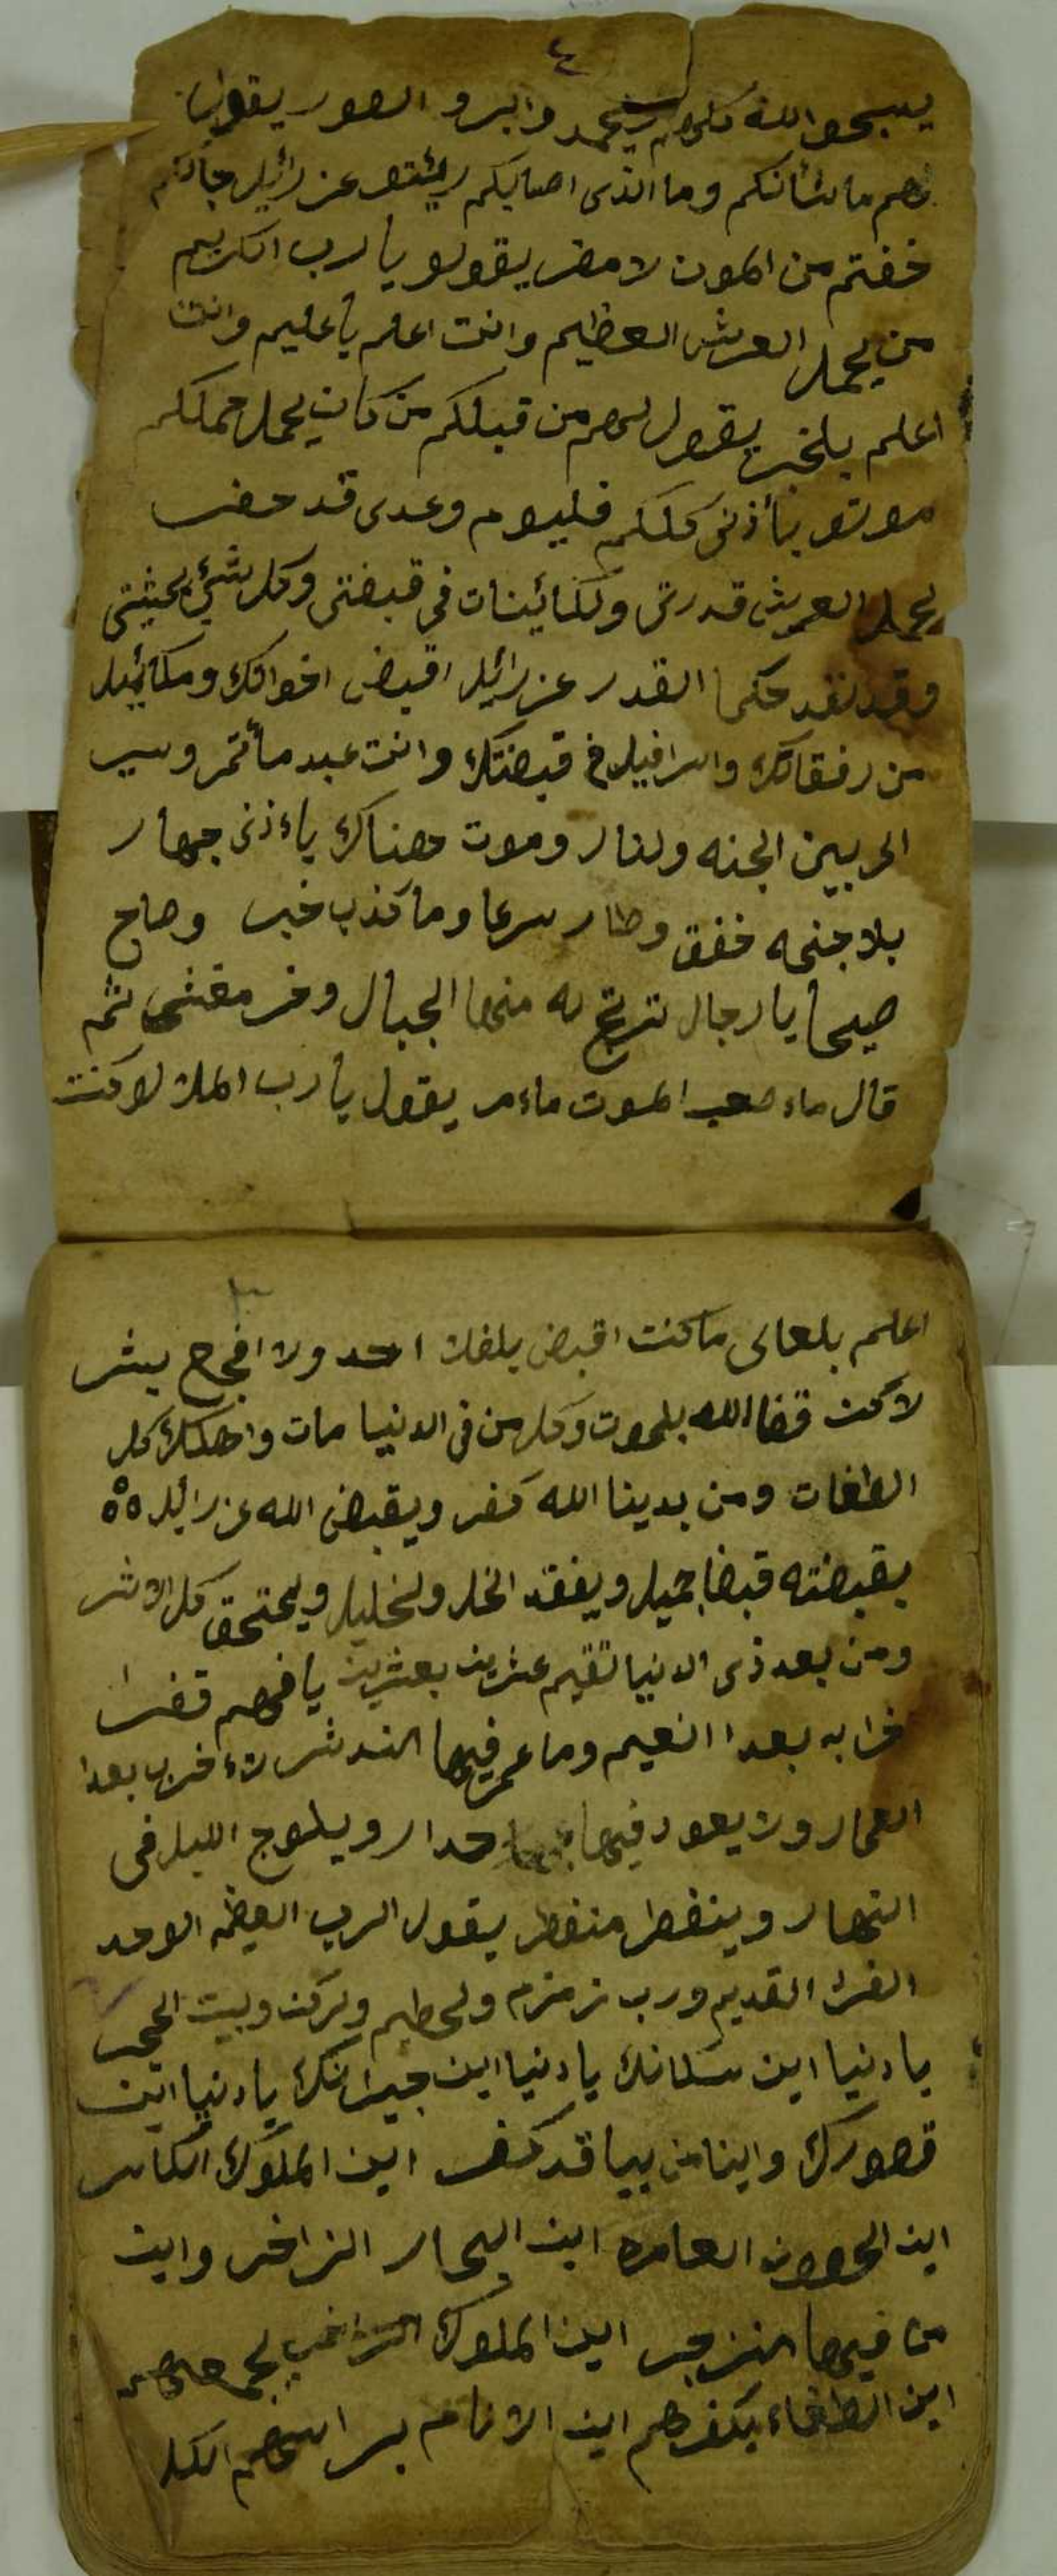 ٤
يسبحو الله كلهم وابرو الصور يقول
لهم ما شأنكم وما الذى اصابكم ريئتو عزرائيل جأكم
خفتم من الموت لا مفر يقولو يأرب الكريم
من يحمل العرش العظيم وانت اعلم يأعليم وانت
اعلم بلخبر يقول لهم من قبلكم من كان يحمل حملكم
موتو بأذنى كلكم فليوم وعدى قد حضر
يحمل العريش قدرتى ولكائينات فى قبضتى وكل شئ بمحثيتى
وقد نفد حكما القدر عزرائيل اقبض اخوانك ومكائيل
من رفقاتك واسرافيل فى قبضتك وانت عبد مأتمر وسير
الى بين الجنه ولنار وموت هناك يأذنى جهار
بلا جنحه خفق وطار سرعا وما كذب خبر وصاح
صيحا يا رجال ترتج له منها الجبال وخر مغشى ثم
قال ماء صعب الموت ماءمر يقول يأرب الملا لو كنت
٣
اعلم بلعالى ما كنت اقبض بلفلا احد ولا افجح بشر
لاكن قضا الله بلموت وكل من فى الدنيا مات واهلك كل
الطغات ومن بدينا الله كفر ويقبض الله عزرائيل ٥٥
بقبضته قبضا جميل ويفقد الخل ولخليل ويمتحق كل الاثر
ومن بعد ذى الدنيا تقيم عشرين بعشرين يا فهيم قفر
خرابه بعدا النعيم وما عمر فيها اندثر لاء خرب بعدا
العمار ولا يعود فيها جدار ويلوج الليل فى
النهار وينفطر منفطر يقول الرب العظيم الوحد
الفرد القديم ورب زمزم ولحطيم ولركن وبيت الحجر
يا دنيا اين سكانك يا دنيا اين جيرانك يا دنيا اين
قصورك واينا من بيا قد كفر اين الملوك الكاسر
اين الحصون العامره اين البحار الزاخر واين
من فيها انزجر اين الملوك بجمعهم
اين الطغاء بكفرهم اين الانام براسهم الكل